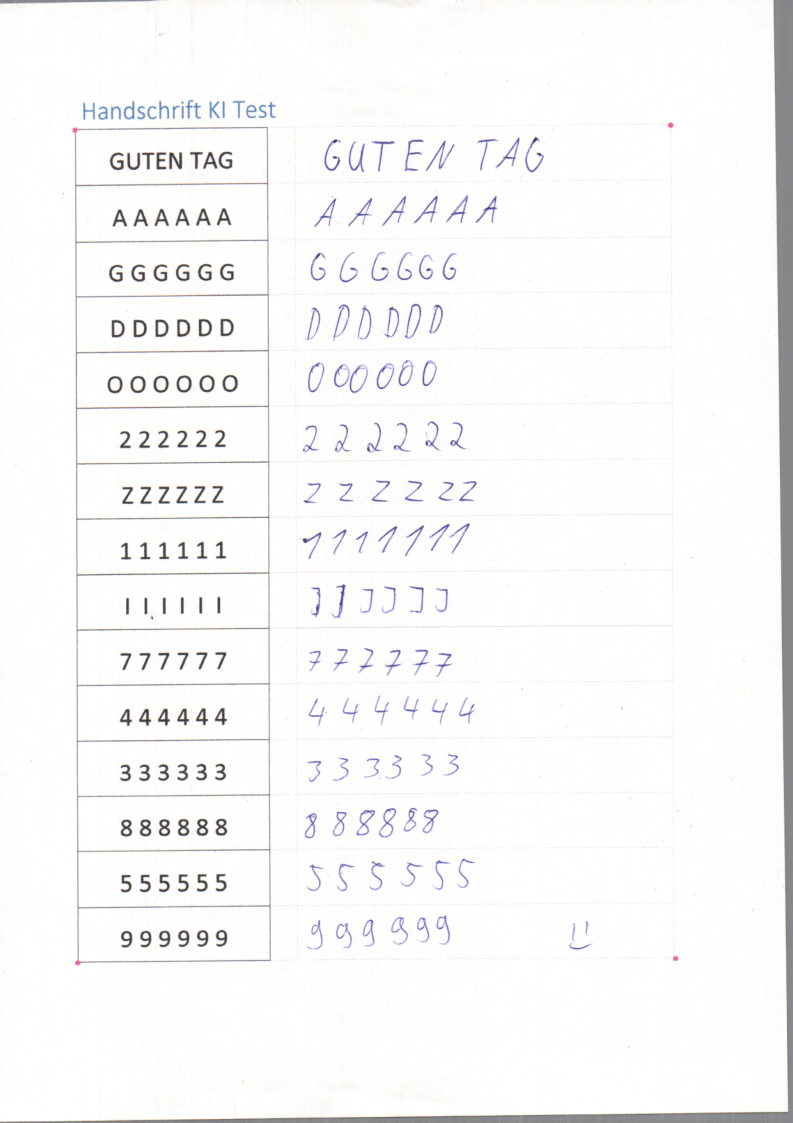 Handschrift KI Test
GUTEN TAG GUTEN TAG
A A A A A A A A A A A A
G G G G G G G G G G G G
D D D D D D D D D D D D
O O O O O O O O O O O O
2 2 2 2 2 2 2 2 2 2 2 2
Z Z Z Z Z Z Z Z Z Z Z Z
1 1 1 1 1 1 1 1 1 1 1 1 1
I I I I I I I I I I I I
7 7 7 7 7 7 7 7 7 7 7 7
4 4 4 4 4 4 4 4 4 4 4 4
3 3 3 3 3 3 3 3 3 3 3 3
8 8 8 8 8 8 8 8 8 8 8 8
5 5 5 5 5 5 5 5 5 5 5 5
9 9 9 9 9 9 9 9 9 9 9 9